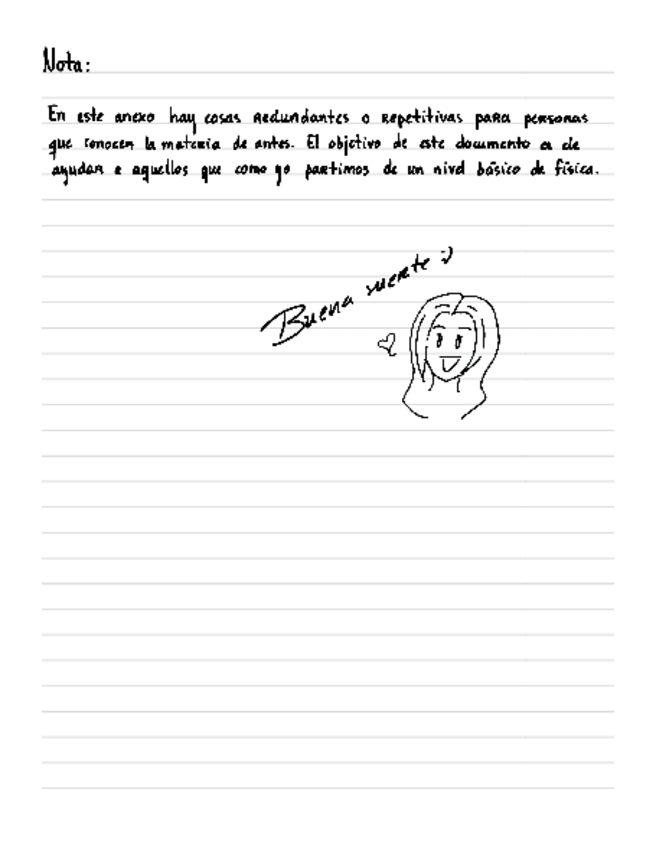 Nota:
En este anexo hay cosas redundantes o repetitivas para personas
que conocen la materia de antes. El objetivo de este documento es de
ayudar a aquellos que como yo partimos de un nivel básico de física.
Buena suerte :)